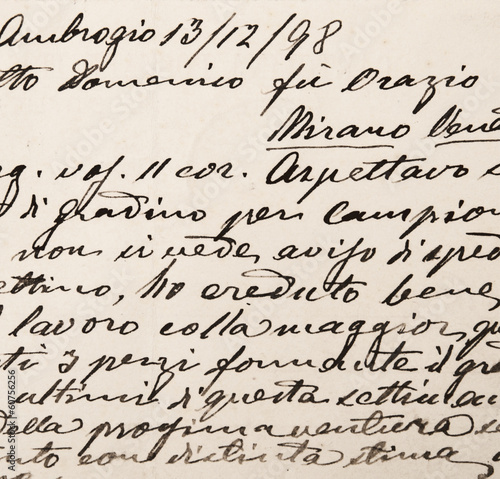 Ambrogio 13/12/98
tto Domenico fù Orazio
Mirano Vene
eg. vos. 11 cor. Aspettavo s
di gradino per campion
non si vede aviso di sped
ettino, ho creduto bene,
l lavoro colla maggior, gu
ti 3 pezzi formante il gra
ultimi di questa settiman
ella prossima ventura se
nto con distinta stima,